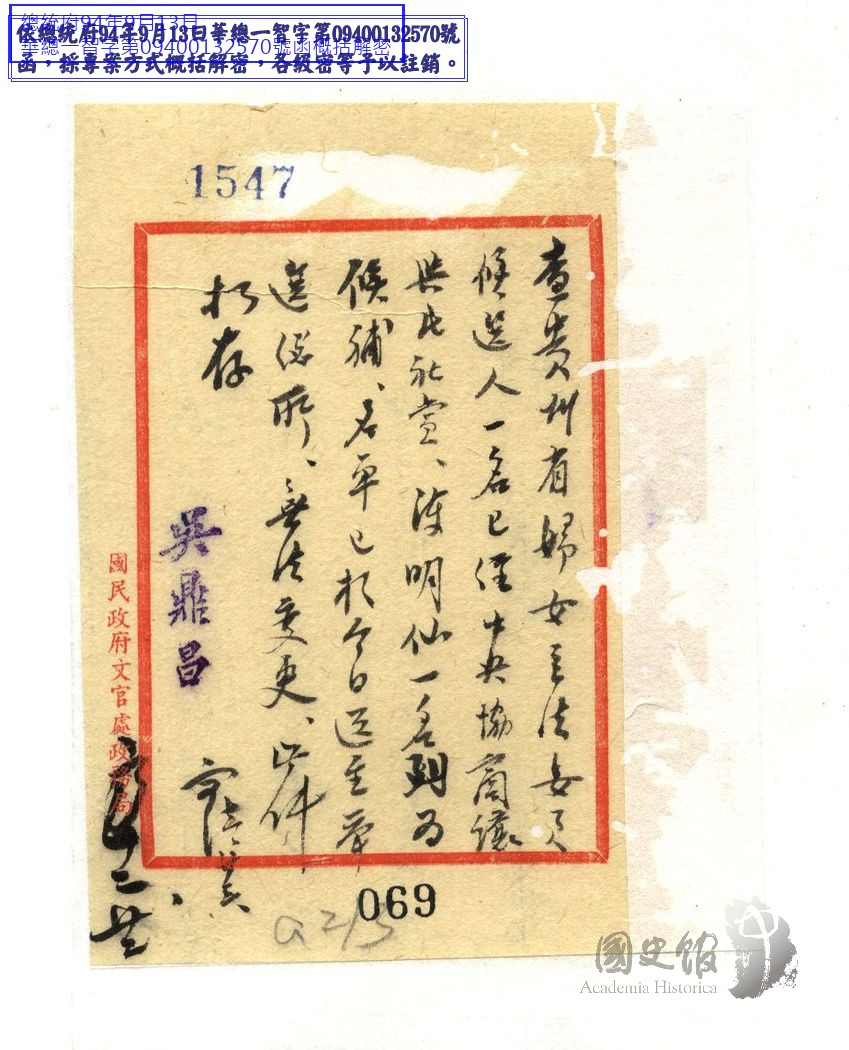 總統府94年9月13日
華總一智字第09400132570號函概括解密
依總統府94年9月13日華總一智字第09400132570號
函，採專案方式概括解密，各級密等予以註銷。
1547
查貴州省婦女立法委員
候選人一名已經中央協商讓
與民社黨、陳明仙一名列為
候補、名單已於今日送至舉
選總所、無法变更、此件
擬存
吳鼎昌
國民政府文官處政務局
十二
069
國史館
Academia Historica